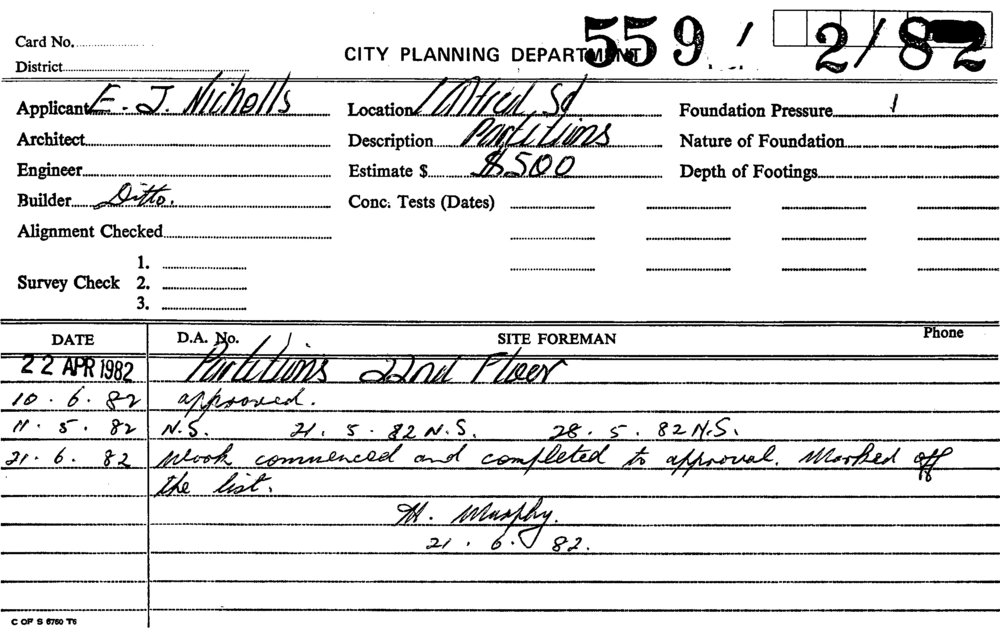 Card No.
559 / 2/82
CITY PLANNING DEPARTMENT
District
Applicant E. J. Nicholls Location 1 Alfred St Foundation Pressure
Architect Description Partitions Nature of Foundation
Engineer Estimate $ $500 Depth of Footings
Builder Ditto. Conc. Tests (Dates)
Alignment Checked
1.
Survey Check 2.
3.
DATE D.A. No. SITE FOREMAN Phone
22 APR 1982 Partitions 22nd Floor
10.6.82 approved.
11.5.82 N.S. 21.5.82 N.S. 28.5.82 N.S.
21.6.82 Work commenced and completed to approval. Marked off
the list.
M. Murphy.
21.6.82.
C OF S 6760 T6